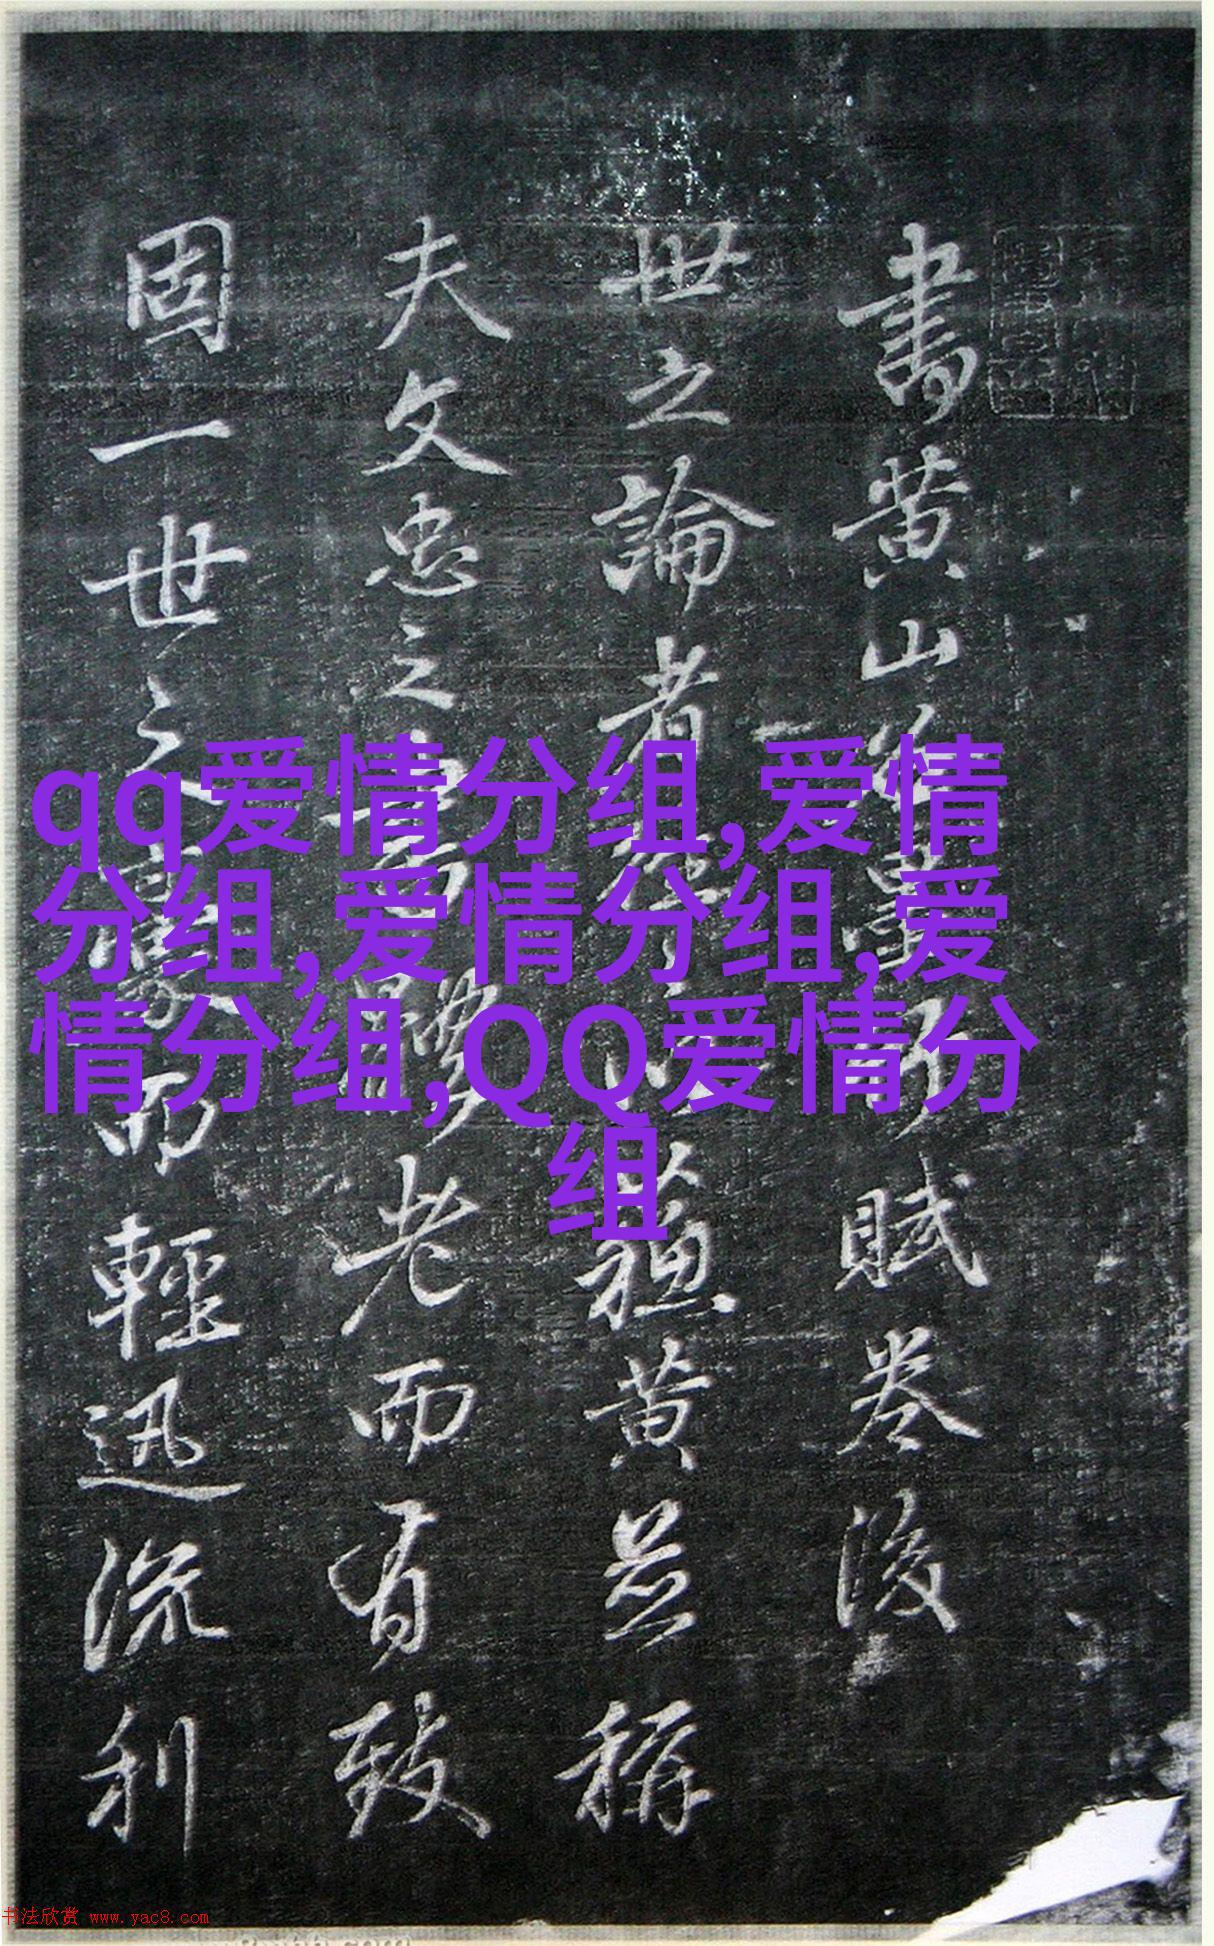 書黄山賦卷後
世之論者蘓黄並稱
夫文忠之書老而有致
固一世之豪而輕迅流利
qq爱情分组,爱情
分组,爱情分组,爱
情分组,QQ爱情分
组
书法欣赏 www.yac8.com